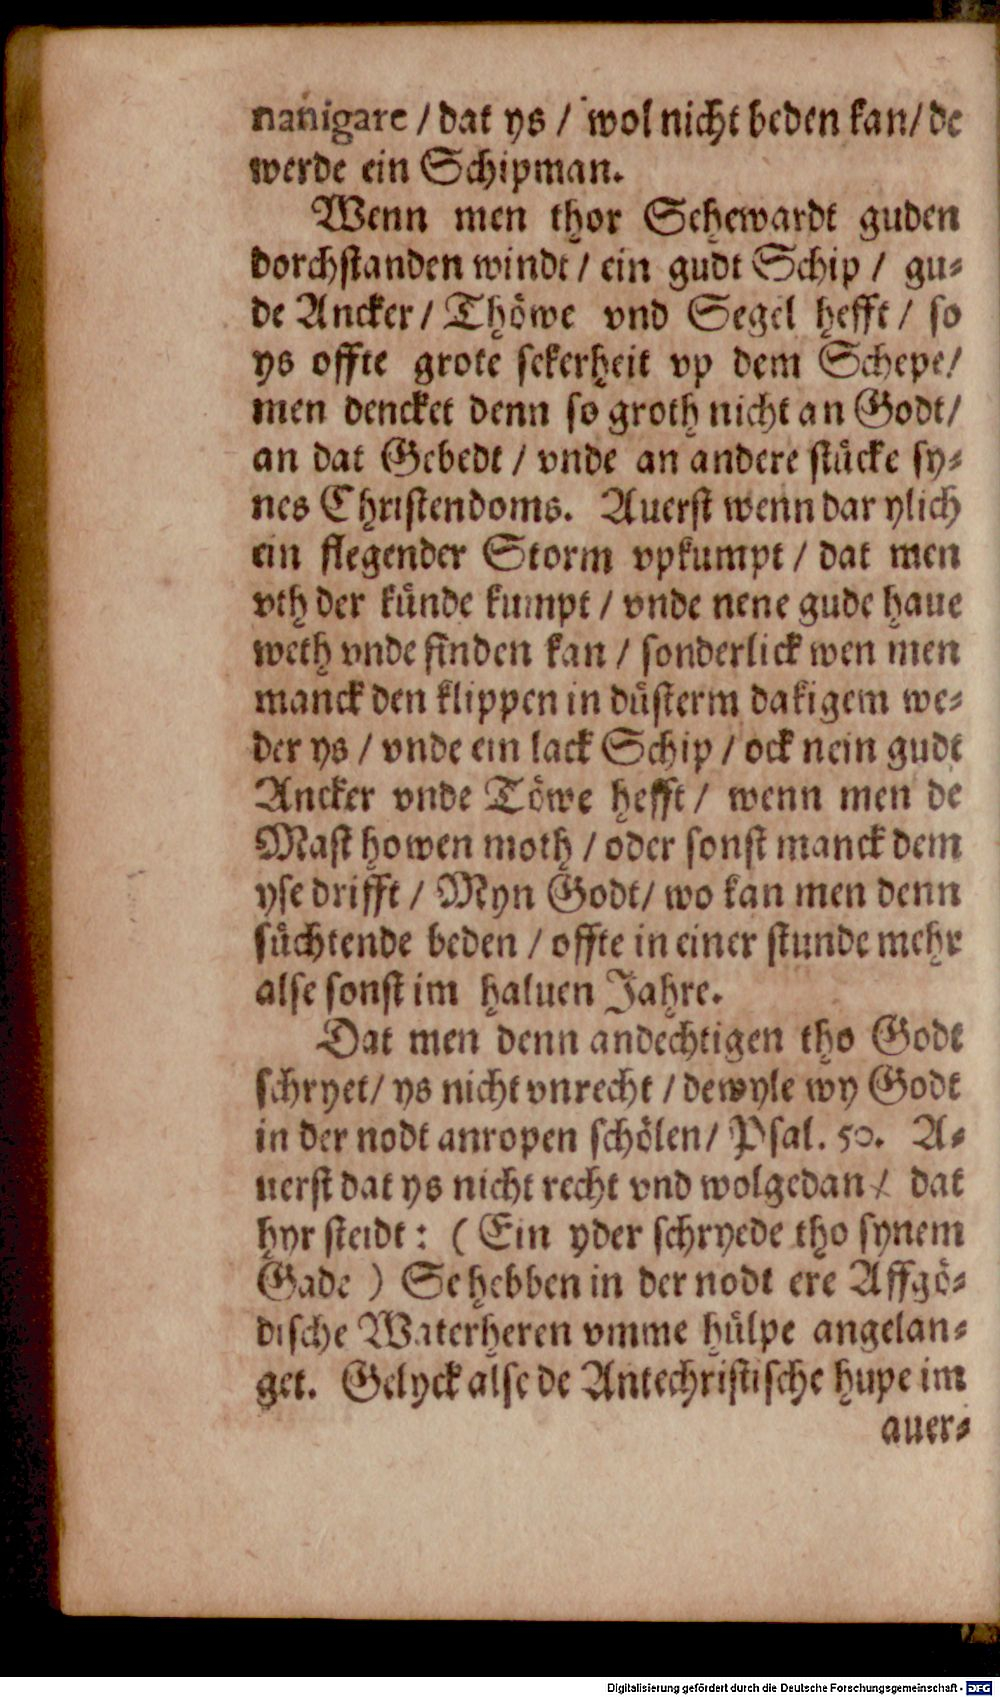 nauigare / dat ys / wol nicht beden kan / de
werde ein Schipman.
Wenn men thor Sehewardt guden
dorchstanden windt / ein gudt Schip / gu⸗
de Ancker / Thöwe vnd Segel hefft / so
ys offte grote sekerheit vp dem Schepe /
men dencket denn so groth nicht an Godt /
an dat Gebedt / vnde an andere stücke sy⸗
nes Christendoms. Auerst wenn dar ylich
ein flegender Storm vpkumpt / dat men
vth der künde kumpt / vnde nene gude haue
weth vnde finden kan / sonderlick wen men
manck den klippen in düsterm dakigem we⸗
der ys / vnde ein lack Schip / ock nein gudt
Ancker vnde Töwe hefft / wenn men de
Mast howen moth / oder sonst manck dem
yse drifft / Myn Godt / wo kan men denn
süchtende beden / offte in einer stunde mehr
alse sonst im haluen Jahre.
Dat men denn andechtigen tho Godt
schryet / ys nicht vnrecht / dewyle wy Godt
in der nodt anropen schölen / Psal. 50. A⸗
uerst dat ys nicht recht vnd wolgedan / dat
hyr steidt : ( Ein yder schryede tho synem
Gade ) Se hebben in der nodt ere Affgö⸗
dische Waterheren vmme hülpe angelan⸗
get. Gelyck alse de Antechristische hupe im
auer⸗
Digitalisierung gefördert durch die Deutsche Forschungsgemeinschaft - DFG